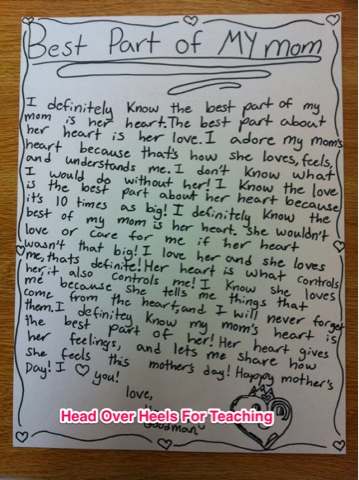 Best Part of My mom
I definitely know the best part of my
mom is her heart. The best part about
her heart is her love. I adore my mom's
heart because that's how she loves, feels,
and understands me. I don't know what
I would do without her! I know the love
is the best part about her heart because
it's 10 times as big! I definitely know the
best of my mom is her heart. She wouldn't
love or care for me if her heart
wasn't that big! I love her and she loves
me, thats definite! Her heart is what controls
her, it also controls me! I know she loves
me because she tells me things that
come from the heart, and I will never forget
them. I definitey know my mom's heart is
the best part of her! Her heart gives
her feelings, and lets me share how
she feels this mother's day! Happy mother's
Day! I ♡ you!
love,
Head Over Heels For Teaching
Goodman